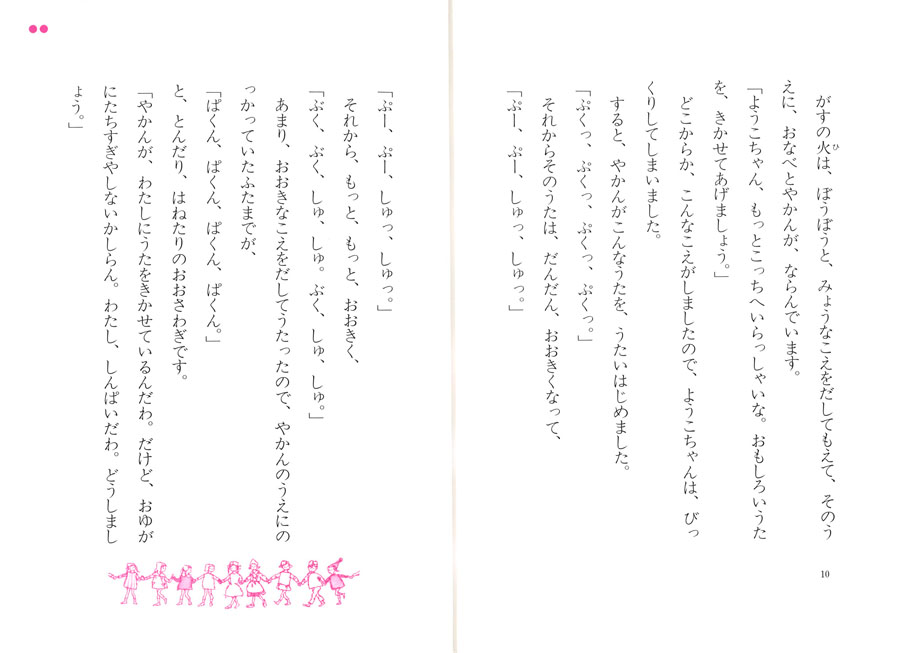 がすの火は、ぼうぼうと、みょうなこえをだしてもえて、そのう
えに、おなべとやかんが、ならんでいます。
「ようこちゃん、もっとこっちへいらっしゃいな。おもしろいうた
を、きかせてあげましょう。」
どこからか、こんなこえがしましたので、ようこちゃんは、びっ
くりしてしまいました。
すると、やかんがこんなうたを、うたいはじめました。
「ぷくっ、ぷくっ、ぷくっ、ぷくっ。」
それからそのうたは、だんだん、おおきくなって、
「ぷー、ぷー、しゅっ、しゅっ。」
10
「ぷー、ぷー、しゅっ、しゅっ。」
それから、もっと、もっと、おおきく、
「ぶく、ぶく、しゅ、しゅ。ぶく、しゅ、しゅ。」
あまり、おおきなこえをだしてうたったので、やかんのうえにの
っかっていたふたまでが、
「ぱくん、ぱくん、ぱくん、ぱくん。」
と、とんだり、はねたりのおおさわぎです。
「やかんが、わたしにうたをきかせているんだわ。だけど、おゆが
にたちすぎやしないかしらん。わたし、しんぱいだわ。どうしまし
ょう。」